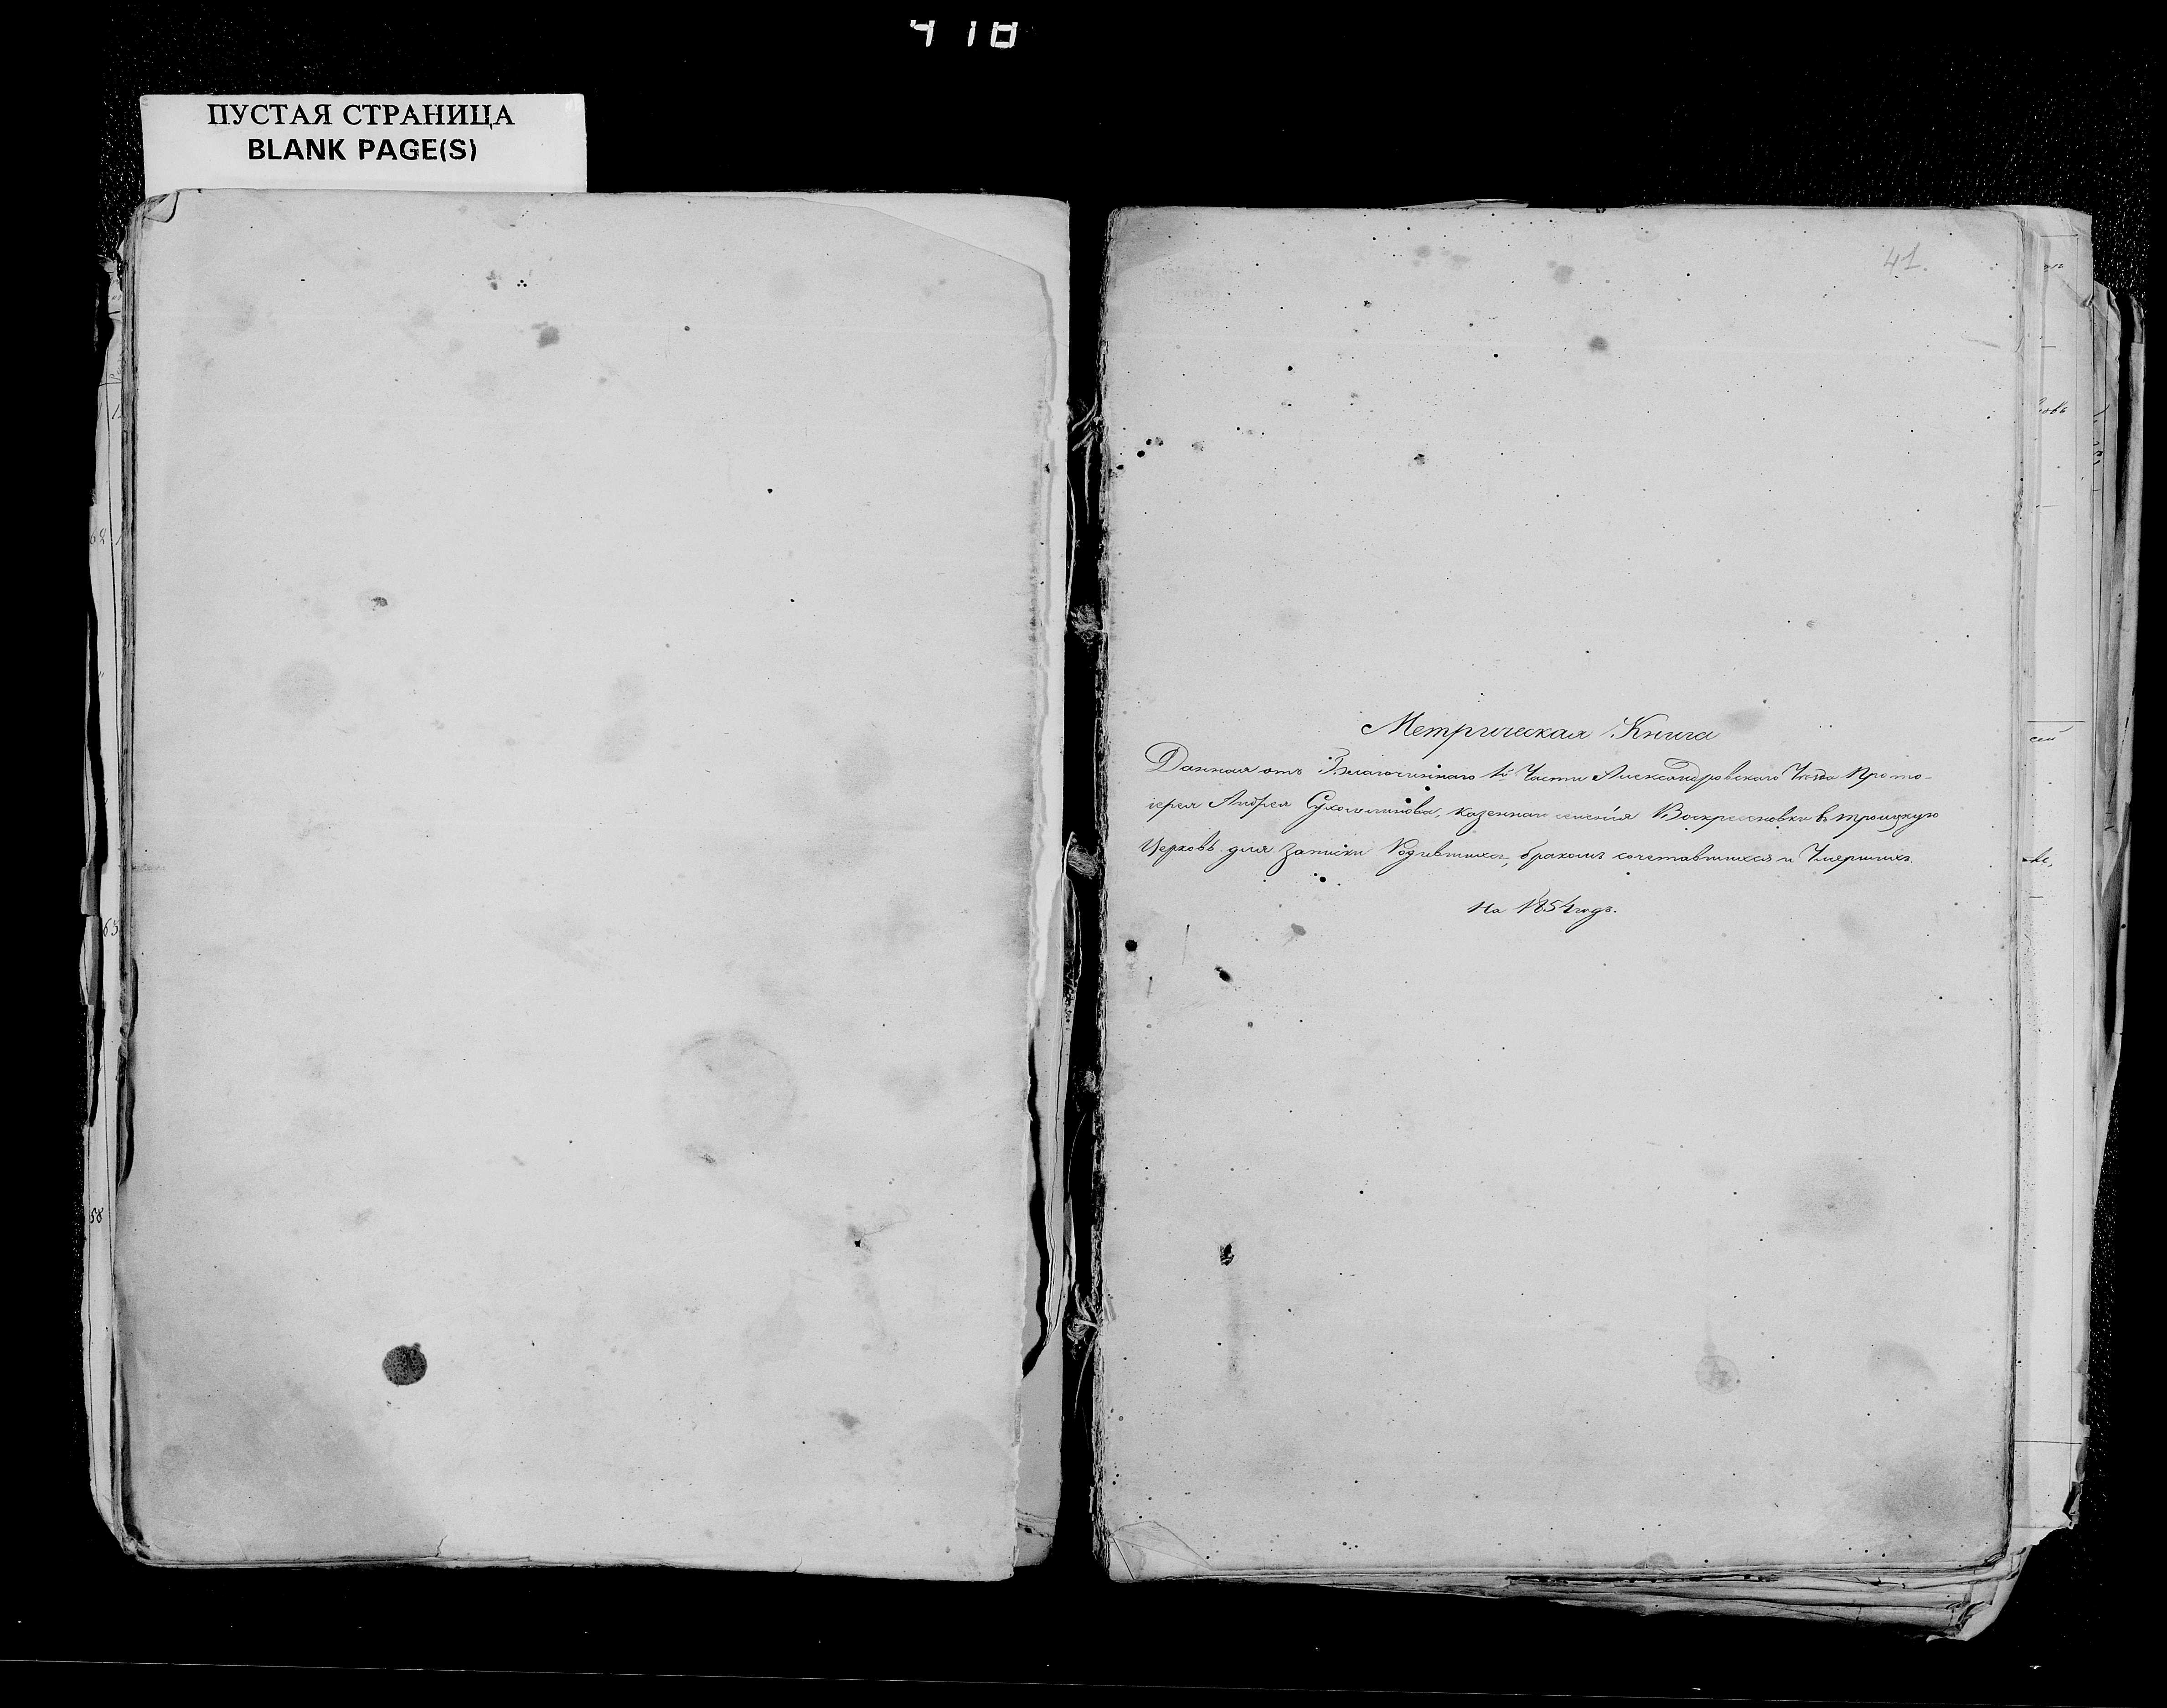 418
ПУСТАЯ СТРАНИЦА
BLANK PAGE(S)
41.
Метрическая Книга
Данная отъ Благочиннаго 1й Части Александровскаго Уѣзда Прото-
іерея Андрея Сухомлинова, казеннаго селенія Воскресеновки въ троицкую
Церковь для записки Родившихся, бракомъ сочетавшихся и Умершихъ.
На 1854 годъ.
62
63
58